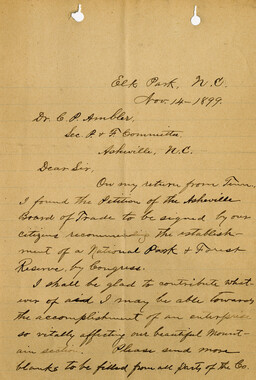 Elk Park, N.C.
Nov. 14 - 1899.
Dr. C. P. Ambler.
Sec P. & F Committee
Asheville, N.C.
Dear Sir,
On my return from Tenn.
I found the Petition of the Asheville
Board of Trade to be signed by our
citizens recommending the establish-
ment of a National Park & Forest
Reserve, by Congress.
I shall be glad to contribute what-
ever of aid I may be able towards
the accomplishment of an enterprise
so vitally affecting our beautiful Mount-
ain section. Please send more
blanks to be filled from all parts of the Co.